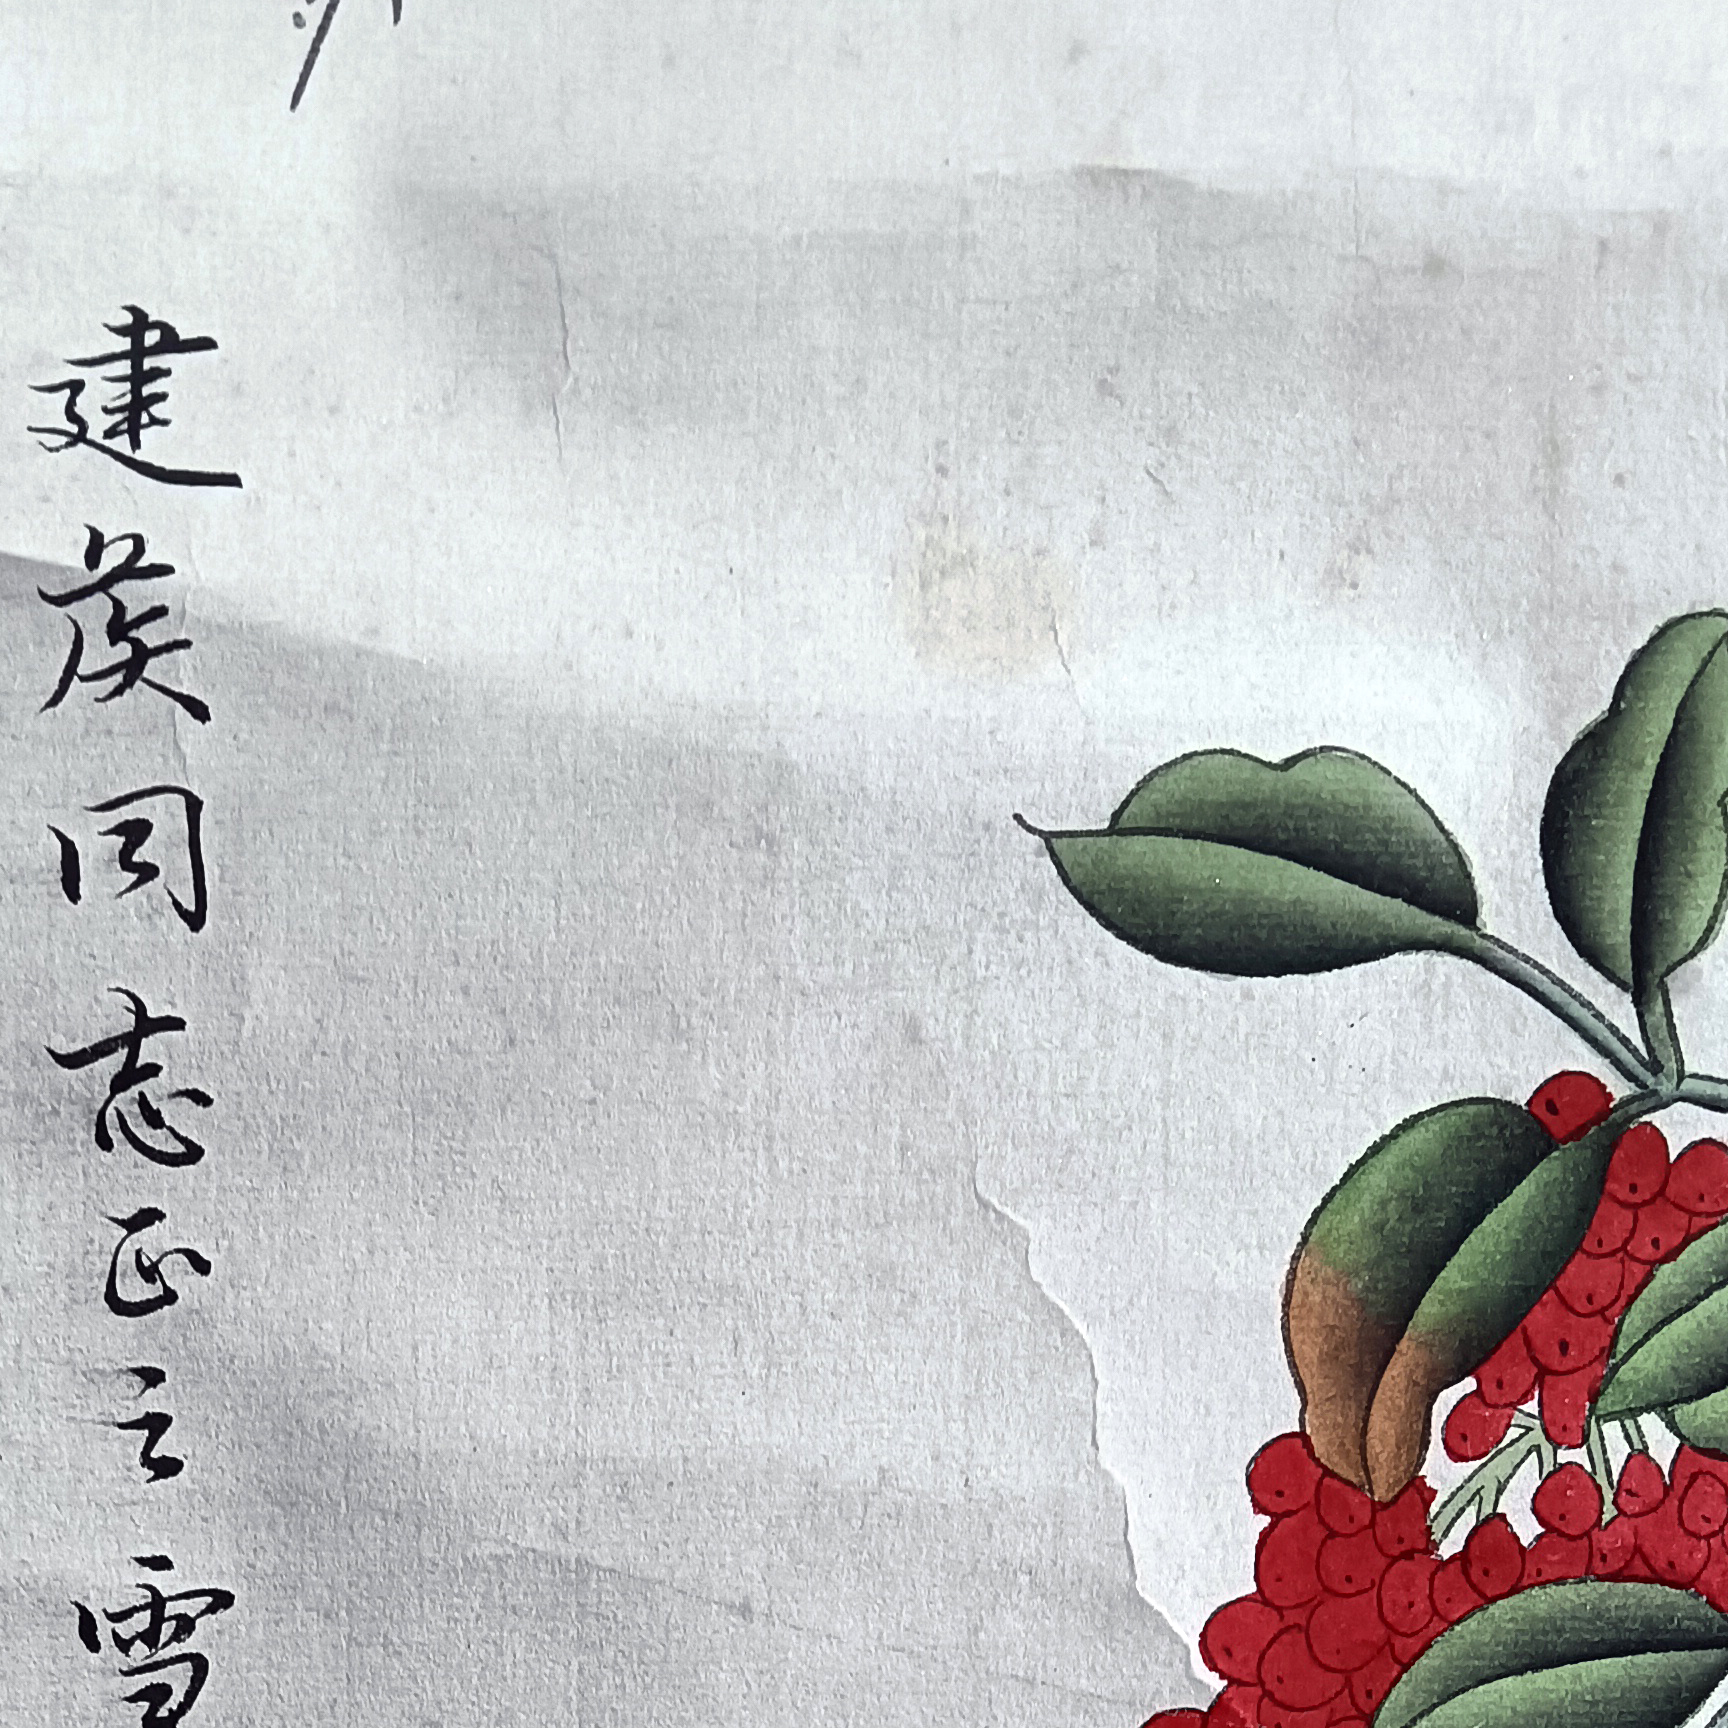 建侯同志正之雪